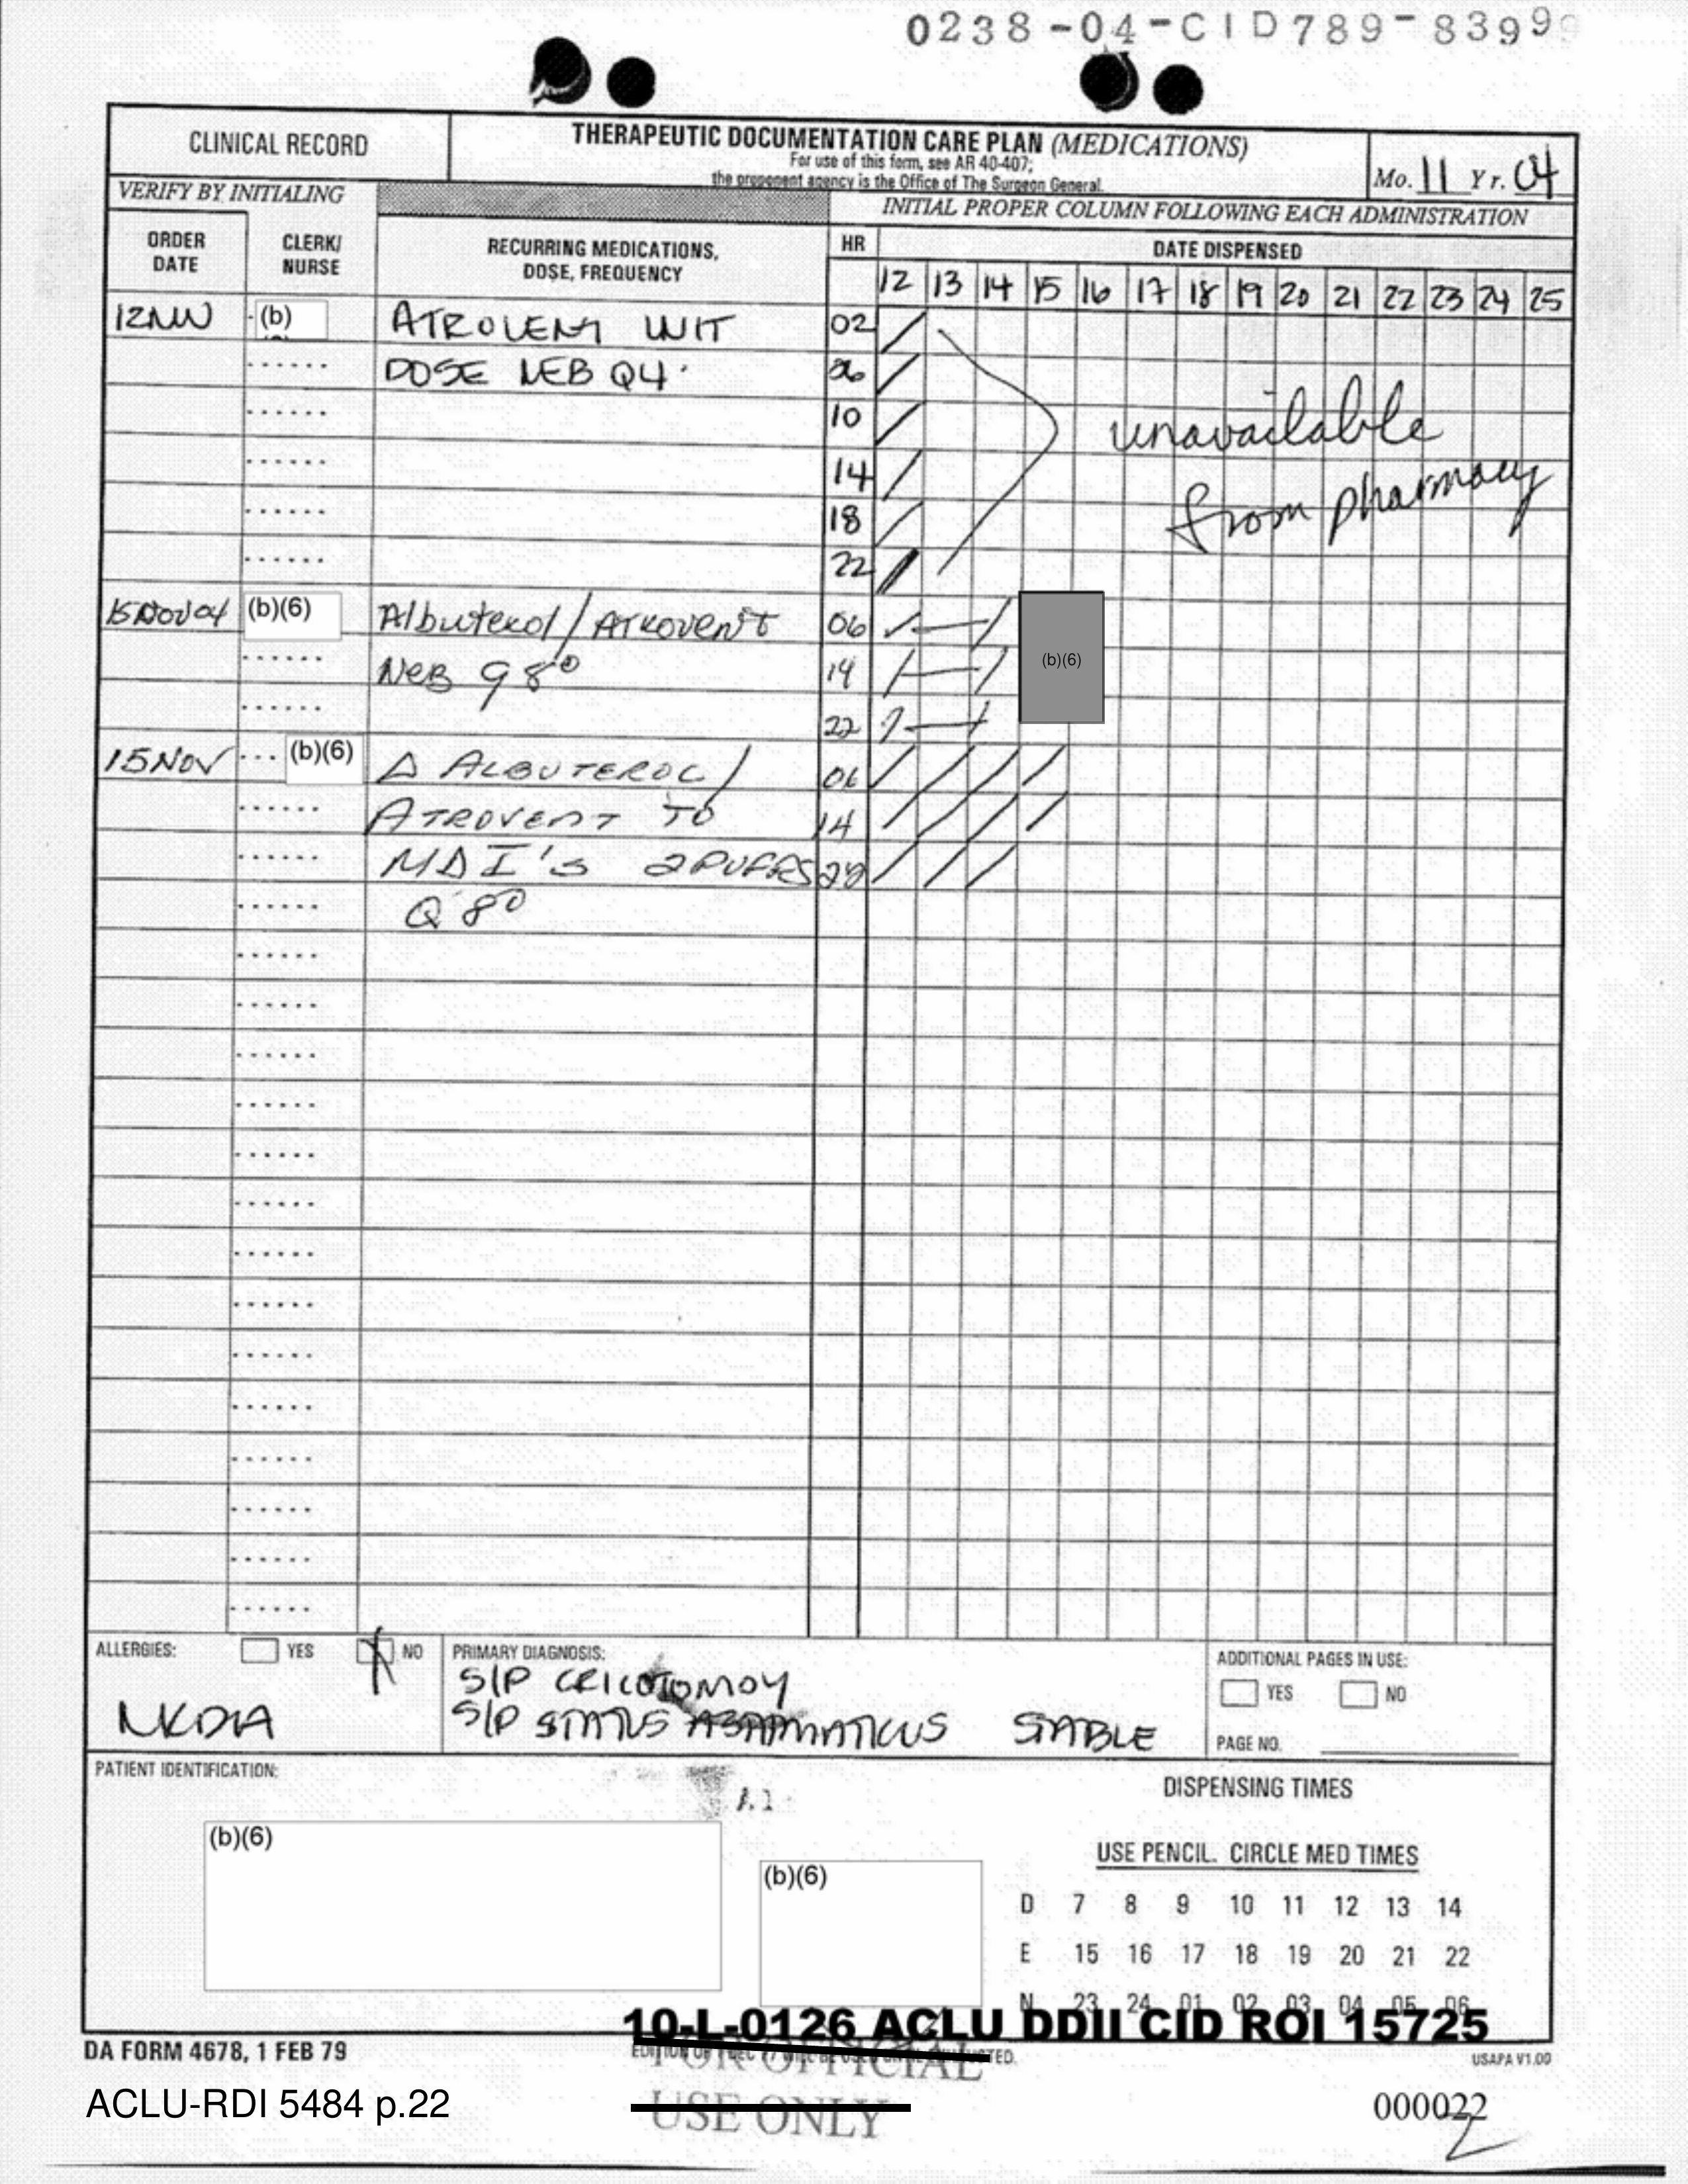 0238-04-CID789-83999
CLINICAL RECORD
THERAPEUTIC DOCUMENTATION CARE PLAN (MEDICATIONS)
For use of this form, see AR 40-407;
the proponent agency is the Office of The Surgeon General.
Mo. 11 Yr. 04
VERIFY BY INITIALING
INITIAL PROPER COLUMN FOLLOWING EACH ADMINISTRATION
ORDER DATE
CLERK/ NURSE
RECURRING MEDICATIONS, DOSE, FREQUENCY
HR
DATE DISPENSED
12 13 14 15 16 17 18 19 20 21 22 23 24 25
(b) ATROVENT UNIT 02
DOSE NEB Q4° 06
10 unavailable
14 from pharmacy
18
22
15Nov04 (b)(6) Albuterol/Atrovent 06
Neb q 8° 14
(b)(6)
22
15NOV (b)(6) Δ ALBUTEROL/ 06
ATROVENT TO 14
MDI'S 2PUFFS 22
Q 8°
ALLERGIES: YES NO
NKDA
PRIMARY DIAGNOSIS:
S/P CRICOTOMOY
S/P STATUS ASTHMATICUS STABLE
ADDITIONAL PAGES IN USE:
YES NO
PAGE NO.
PATIENT IDENTIFICATION:
(b)(6)
(b)(6)
DISPENSING TIMES
USE PENCIL. CIRCLE MED TIMES
D 7 8 9 10 11 12 13 14
E 15 16 17 18 19 20 21 22
N 23 24 01 02 03 04 05 06
10-L-0126 ACLU DDII CID ROI 15725
DA FORM 4678, 1 FEB 79
USAPA V1.00
FOR OFFICIAL
USE ONLY
ACLU-RDI 5484 p.22
000022